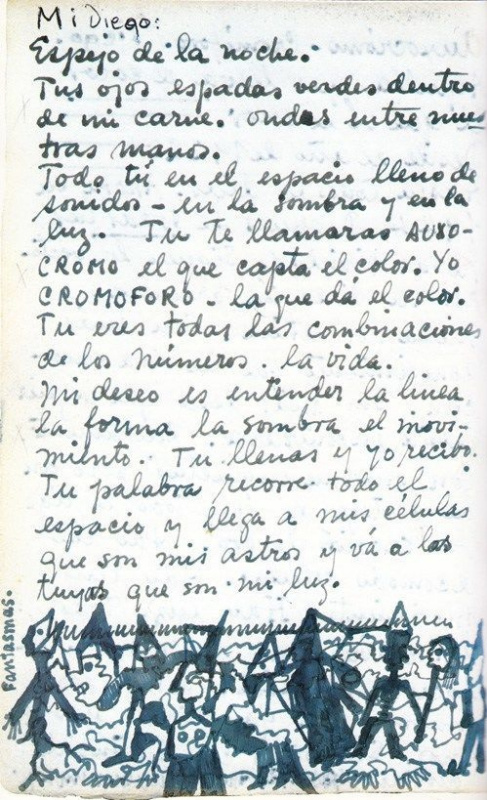 Mi Diego:
Espejo de la noche.
Tus ojos espadas verdes dentro
de mi carne. ondas entre nues-
tras manos.
Todo tú en el espacio lleno de
sonidos - en la sombra y en la
luz. Tu te llamaras AUXO-
CROMO el que capta el color. Yo
CROMOFORO - la que dá el color.
Tu eres todas las combinaciones
de los números. la vida.
Mi deseo es entender la linea
la forma la sombra el movi-
miento. Tu llenas y yo recibo.
Tu palabra recorre todo el
espacio y llega a mis células
que son mis astros y vá a las
tuyas que son mi luz.
Fantasmas.